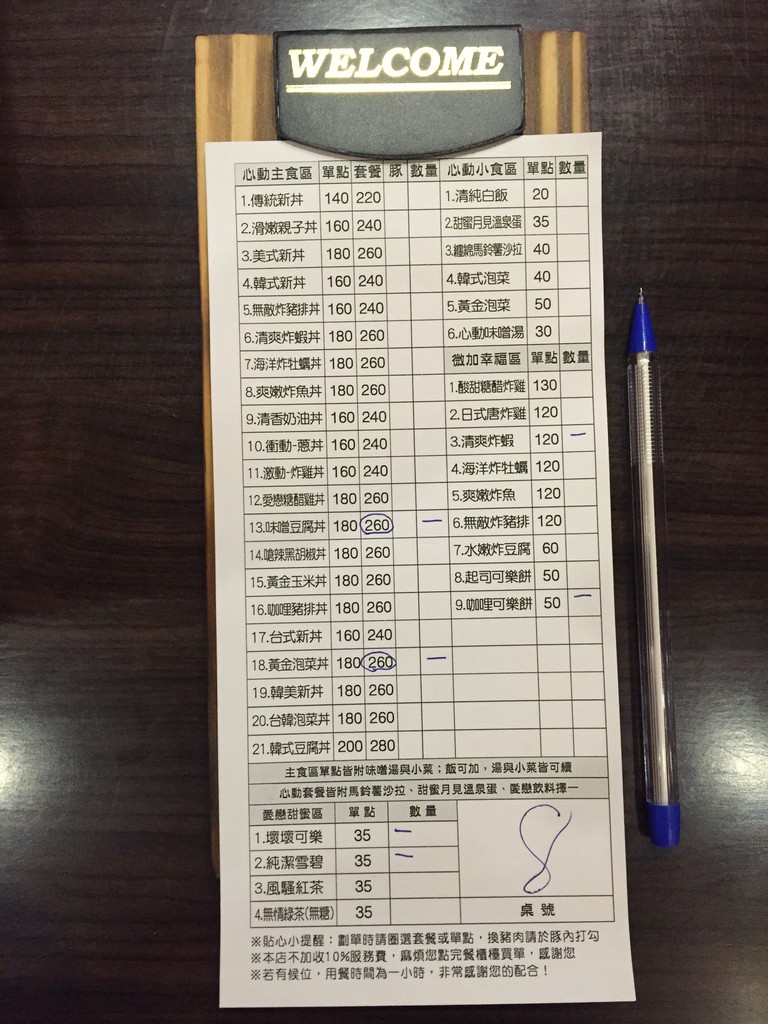 WELCOME
心動主食區 單點 套餐 豚 數量 心動小食區 單點 數量
1.傳統新丼 140 220 1.清純白飯 20
2.滑嫩親子丼 160 240 2.甜蜜月見溫泉蛋 35
3.美式新丼 180 260 3.纏綿馬鈴薯沙拉 40
4.韓式新丼 160 240 4.韓式泡菜 40
5.無敵炸豬排丼 160 240 5.黃金泡菜 50
6.清爽炸蝦丼 180 260 6.心動味噌湯 30
7.海洋炸牡蠣丼 180 260 微加幸福區 單點 數量
8.爽嫩炸魚丼 180 260 1.酸甜糖醋炸雞 130
9.清香奶油丼 160 240 2.日式唐炸雞 120
10.衝動-蔥丼 160 240 3.清爽炸蝦 120 一
11.激動-炸雞丼 160 240 4.海洋炸牡蠣 120
12.愛戀糖醋雞丼 180 260 5.爽嫩炸魚 120
13.味噌豆腐丼 180 260 一 6.無敵炸豬排 120
14.嗆辣黑胡椒丼 180 260 7.水嫩炸豆腐 60
15.黃金玉米丼 180 260 8.起司可樂餅 50
16.咖哩豬排丼 180 260 9.咖哩可樂餅 50 一
17.台式新丼 160 240
18.黃金泡菜丼 180 260 一
19.韓美新丼 180 260
20.台韓泡菜丼 180 260
21.韓式豆腐丼 200 280
主食區單點皆附味噌湯與小菜；飯可加，湯與小菜皆可續
心動套餐皆附馬鈴薯沙拉、甜蜜月見溫泉蛋、愛戀飲料擇一
愛戀甜蜜區 單點 數量
1.壞壞可樂 35 一
2.純潔雪碧 35 一
3.風騷紅茶 35
4.無情綠茶(無糖) 35
8
桌號
※貼心小提醒：劃單時請圈選套餐或單點，換豬肉請於豚內打勾
※本店不加收10%服務費，麻煩您點完餐櫃檯買單，感謝您
※若有候位，用餐時間為一小時，非常感謝您的配合！